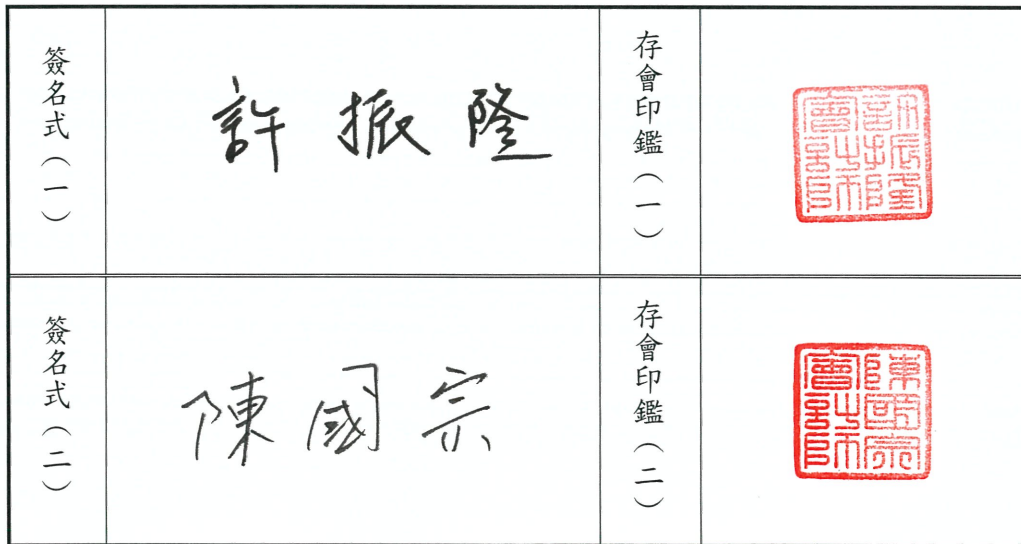 簽名式（一）
許振隆
存會印鑑（一）
許振隆會計師
簽名式（二）
陳國宗
存會印鑑（二）
陳國宗會計師